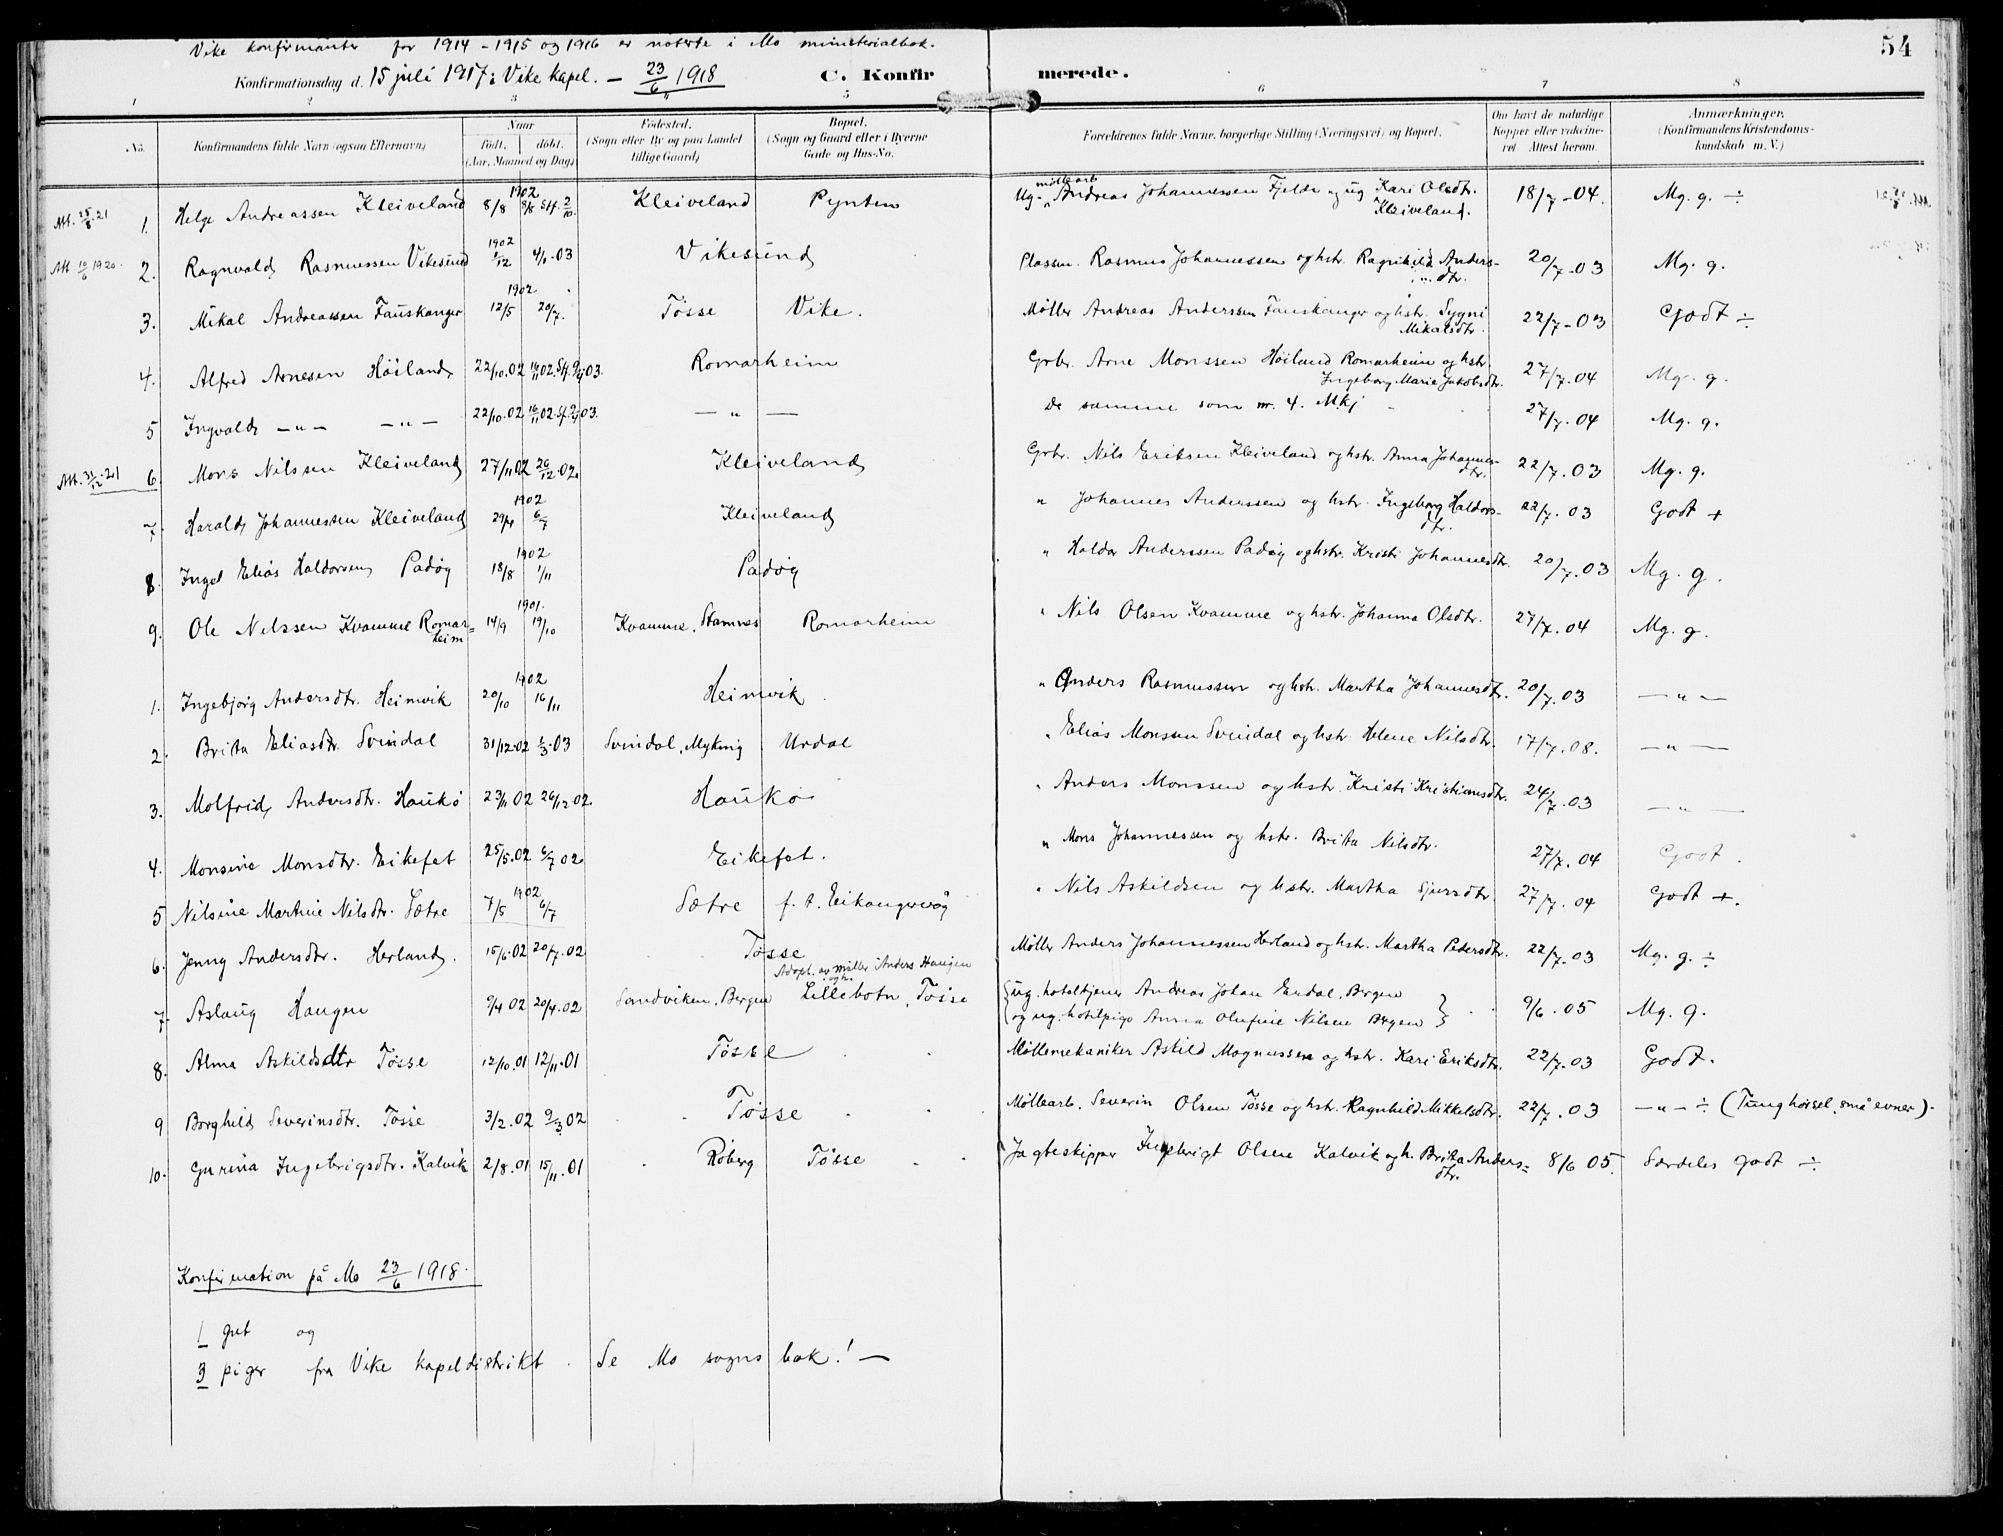 54
Vike konfirmanter for 1914 - 1915 og 1916 er noterte i Mo ministerialbok.
Konfirmationsdag d. 15 juli 1917 i Vike kapel. — 23/6 1918 C. Konfirmerede.
1 2 3 5 6 7 8
No. Konfirmandens fulde Navn (ogsaa Efternavn) Naar født. døbt. (Aar, Maaned og Dag) Fødested. (Sogn eller By og paa Landet tillige Gaard) Bopæl. (Sogn og Gaard eller i Byerne Gade og Hus-No. Forældrenes fulde Navne, borgerlige Stilling (Næringsvei) og Bopæl. Om havt de naturlige Kopper eller vaccineret. Attest herom. Anmærkninger. (Konfirmandens Kristendomskundskab m. V.)
1. Helge Andreassen Kleiveland 1902 8/8 Kleiveland Pynten Ug. møllearb. Andreas Johannessen Fjelde og ug Kari Olsdtr. Kleiveland. 18/7-04. Mg. g. ÷
Att 10/6 1920. 2. Ragnvald Rasmussen Vikesund 1902 1/12 4/1.03 Vikesund Plassm. Rasmus Johannessen og hstr. Ragnhild Andersdtr. 20/7-03 Mg. g.
3. Mikal Andreassen Fauskanger 1902 12/5 20/7. Tösse Vike. Møller Andreas Anderssen Fauskanger og hstr. Sygni Mikalsdtr. 22/7-03 Godt ÷
4. Alfred Arnesen Höiland 22/10.02 16/11 02. Romarheim Grbr. Arne Monssen Höiland Romarheim og hstr. Ingeborg Marie Jakobsdtr. 27/7.04 Mg. g.
5 Ingvald —"— —"— 22/10.02 16/11 02. — " — De samme som nr. 4. 27/7.04 Mg. g.
Att. 31/12.21 6. Mons Nilssen Kleiveland 27/11 02 26/12.02. Kleiveland Grbr. Nils Eriksen Kleiveland og hstr. Anna Johannesdtr. 22/7.03 Mg. g.
7. Harald Johannessen Kleiveland 1902 6/7 Kleiveland " Johannes Anderssen og hstr. Ingeborg Haldorsdtr. 22/7.03 Godt +
8. Ingel Elias Haldorsen Padøy 1902 18/8 1/11 Padøy " Haldor Anderssen Padøy og hstr. Kristi Johannesdtr. 20/7.03 Mg. g.
9. Ole Nilssen Kvamme Romarheim 1901. 14/9 19/10 Kvamme, Stamnes Romarheim " Nils Olsen Kvamme og hstr. Johanna Olsdtr. 27/7.04 Mg. g.
1. Ingebjørg Andersdtr. Heimvik 1902 20/10 16/11 Heimvik " Anders Rasmussen og hstr. Martha Johannesdtr. 20/7.03 — " —
2. Brita Eliasdtr. Svindal 31/12.02 1/3.03 Svindal, Myking Urdal " Elias Monsen Svindal og hstr. Helene Nilsdtr. 17/7.08. — " —
3. Molfrid Andersdtr. Haukø 23/11 02 26/12 02. Haukö " Anders Monssen og hstr. Kristi Kristiansdtr. 24/7.03 — " —
4. Monsine Monsdtr. Eikefet 25/5.02 6/7 02 Eikefet. " Mons Johannessen og hstr. Brita Nilsdtr. 27/7.04 Godt.
5 Nilsine Martine Nilsdtr. Sætre 1902 7/5 6/7 Sætre f. t. Eikangervåg " Nils Askildsen og hstr. Martha Sjursdtr. 27/7.04 Godt +.
6. Jenny Andersdtr. Herland. 15/6.02 20/7.02 Tøsse Møller Anders Johannessen Herland og hstr. Martha Pedersdtr. 22/7.03 Mg. g. ÷
7. Aslaug Haugen 9/4 02 20/4.02 Sandviken, Bergen Adopt. av møller Anders Haugen og h. Lillebotn, Tøsse ug. hoteltjener Andreas Johan Erdal, Bergen
og ug. hotelpige Anna Olufine Nilsen Bergen 9/6.05 Mg. g.
8. Alma Askildsdtr Tösse 12/10.01 12/11.01 Tösse Møllemekaniker Askild Magnussen og hstr. Kari Eriksdtr. 22/7.03 Godt.
9 Borghild Severinsdtr. Tösse 3/2.02 9/3 02 Tøsse Møllearb. Severin Olsen Tösse og hstr. Ragnhild Mikkelsdtr. 22/7.03 —"— ÷ (Tunghørsel, små evner).
10. Gurina Ingebrigsdtr. Kalvik 2/8.01 15/11.01 Röberg Tösse Jagteskipper Ingebrigt Olsen Kalvik og h. Brita Andersdtr. 8/6 05. Særdeles godt ÷
Konfirmation på Mo 23/6 1918.
1 gut og
3 piger fra Vike kapeldistrikt. Se Mo sogns bok! —